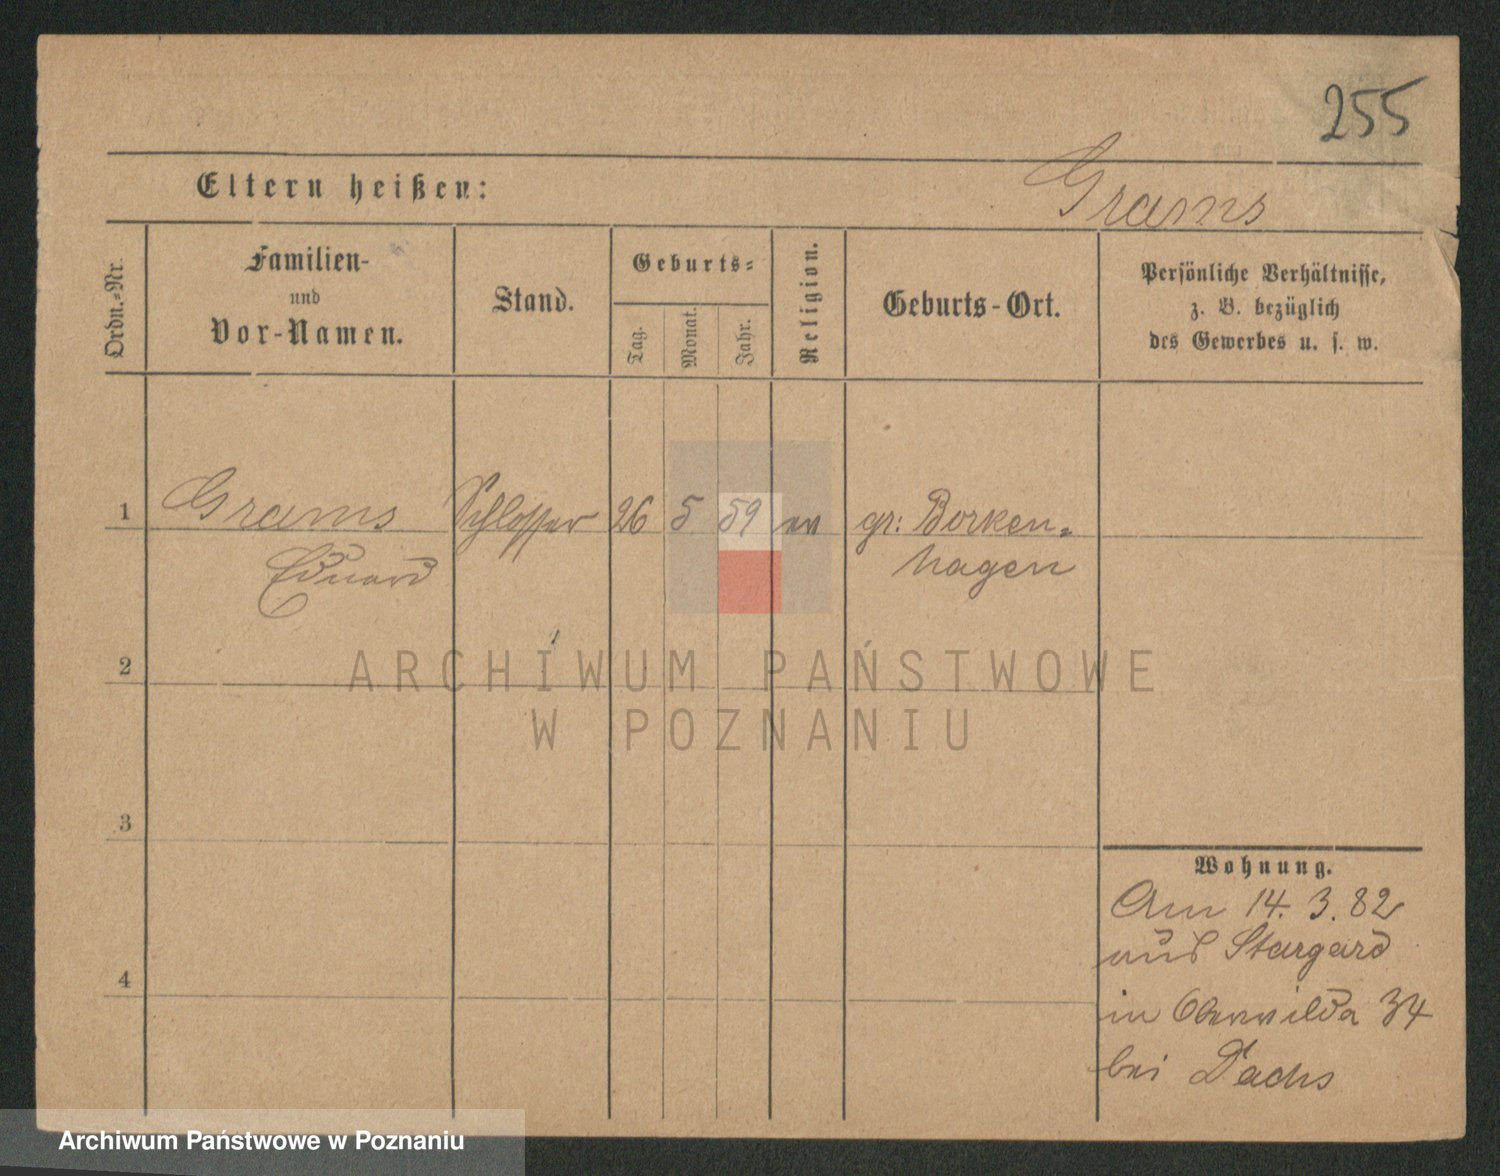 255
Eltern heißen:
Grams
Ordn.-Nr.
Familien-
und
Vor-Namen.
Stand.
Geburts-
Tag.
Monat.
Jahr.
Religion.
Geburts-Ort.
Persönliche Verhältnisse,
z. B. bezüglich
des Gewerbes u. s. w.
1 Grams Schlosser 26 5 59 ev gr: Borken-
Eduard hagen
2
ARCHIWUM PAŃSTWOWE
W POZNANIU
3
4
Wohnung.
Am 14. 3. 82
aus Stargard
in Oberwilda 34
bei Dachs
Archiwum Państwowe w Poznaniu